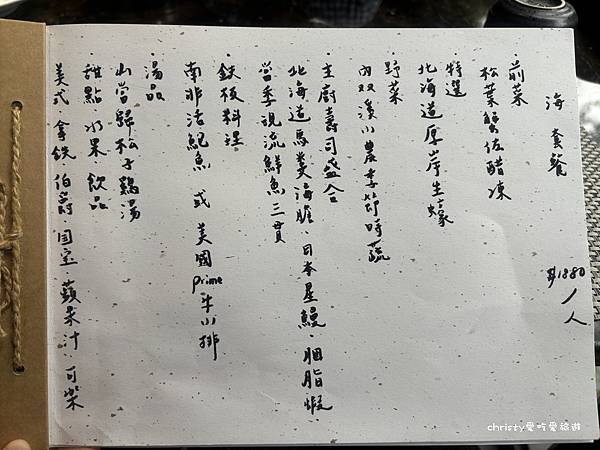 海套餐 $1880/人
·前菜
松葉蟹佐醋凍
·特選
北海道厚岸生蠔
·野菜
內双溪小農季節時蔬
·主廚壽司盛合
北海道馬糞海膽、日本星鰻、胭脂蝦
當季現流鮮魚三貫
·鉄板料理
南非活鮑魚 或 美國prime牛小排
·湯品
山當歸松子鷄湯
·甜點 水果 飲品
美式 拿鉄 伯爵 國寶 蘋果汁 可樂
christy愛吃愛旅遊